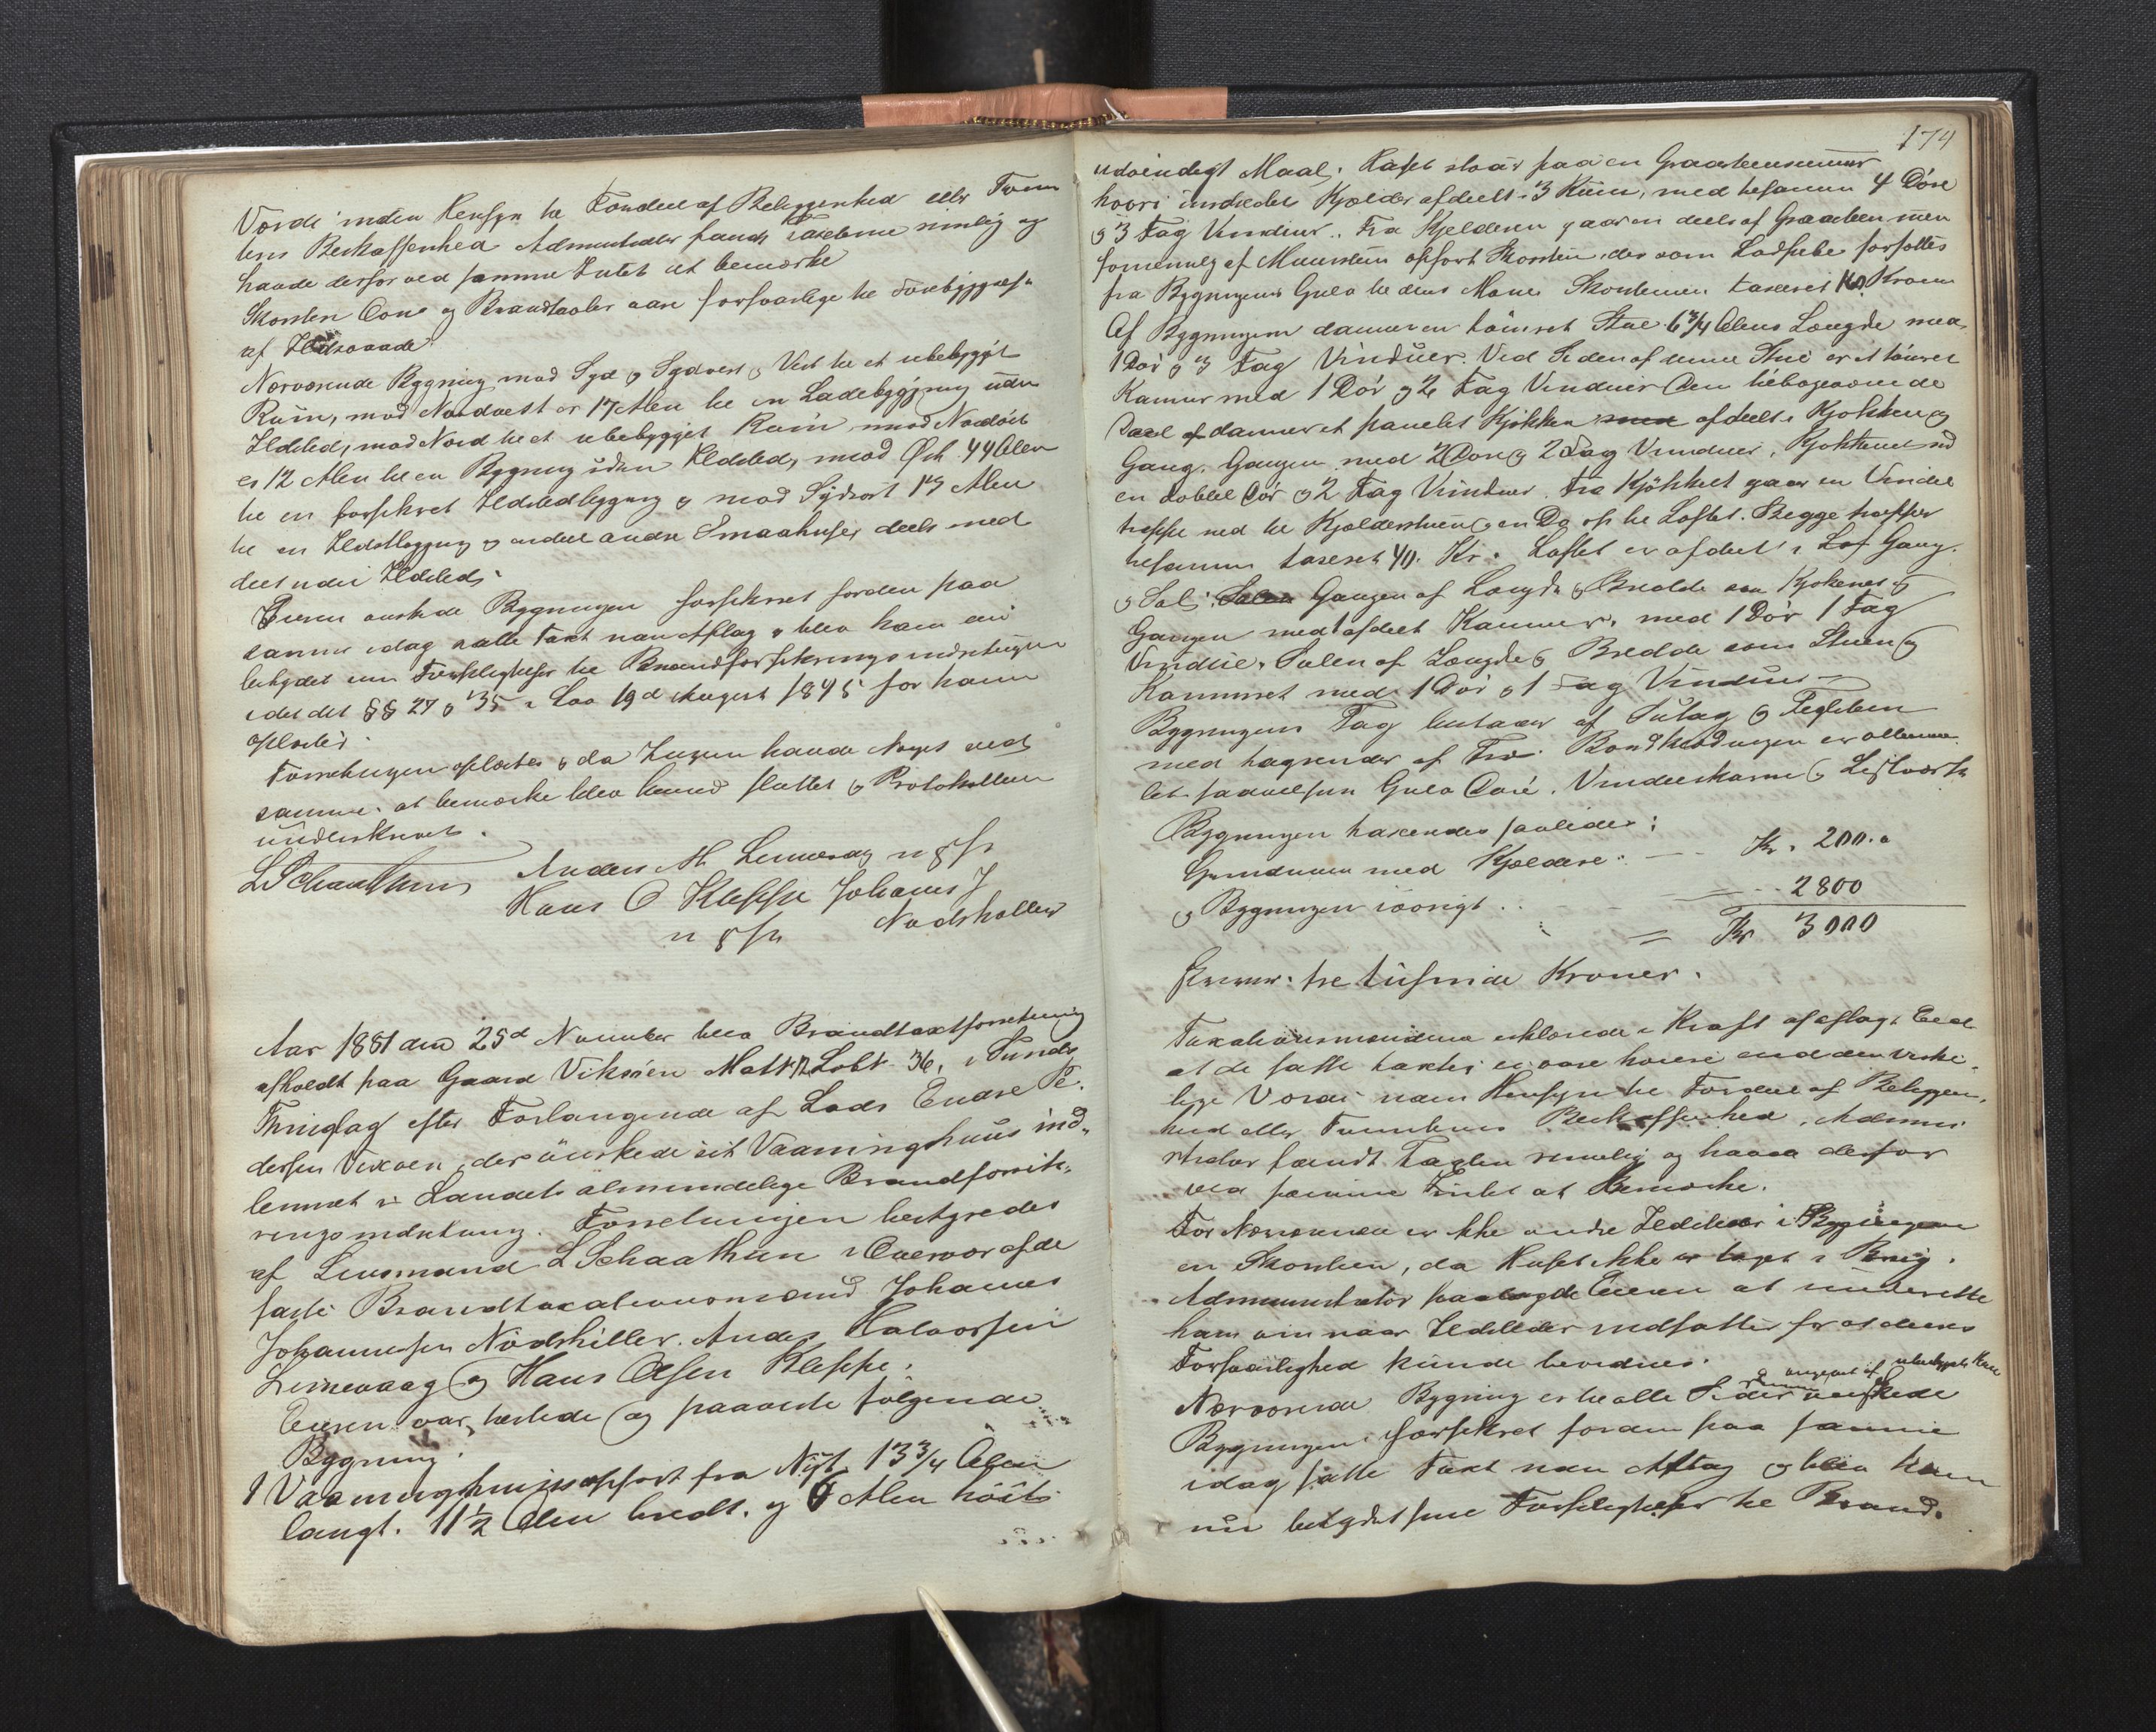 Værdi uden Hensyn til Fordeel af Beliggenhed eller Tom
tens Beskaffenhed Administrator fandt Taxterne rimelig og
havde derfor ved samme Intet at bemærke
Skorsten Ovne og Brandtavler vare forsvarlige til Forebyggelse
af Ildsvaade
Nærværende Bygning mod Syd og Sydvest og Vest til et ubebygget
Rum, mod Nordvest er 17 Alen til en Ladebygning uden
Ildsted, mod Nord til et ubebygget Rum mod Nordost
er 12 Alen til en Bygning uden Ildsted, mod Øst 44 Alen
til en forsikret Ildstedbygning og mod Sydost 17 Alen
til en Ildstbygning og endeel andre Smaahuse, deels med
deels uden Ildsted.
Eieren ønskede Bygningen forsikret for den paa
samme idag satte Taxt uden Afslag og blev ham
betydet sine Forpligtelser til Brandforsikringsindretningen
idet det §§ 27 og 35 i Lov 19d August 1845 for ham
oplæstes.
Forretningen oplæstes og da Ingen havde Noget ved
samme at bemærke blev hermed sluttet og Protokollen
underskrevet.
L Schaathun Anders H Lernevaag m p P
Hans O Kleppe Johannes J
m p P Nødskellen
Aar 1881 den 25d November blev Brandtaxtforretning
afholdt paa Gaard Viksøen Matr N Løbn 36, i Sunds
Thinglag efter Forlangende af Lods Endre Pe.
dersen Vixøen, der ønskede sit Vaaningshuus ind,,
lemmet i Landets almindelige Brandforsik,,
ringsindretning. Forretningen bestyredes
af Lensmand L Schaathun i Overvær af de
faste Brandtaxationsmænd Johannes
Johannessen Nødskiller. Anders Halvorsen
Lernevaag og Hans Olsen Kleppe.
Eieren var tilstede og paaviste følgende
Bygning
1 Vaaningshuus opført fra Nyt 13 3/4 Alen
langt. 11 1/2 Alen bredt. og 6 Alen høit
174
udvendigt Maal. Huset staar paa en Graasteensmuur
hvori indredet Kjælder afdeelt i 3 Rum, med tilsammen 4 Døre
og 3 Fag Vinduer. Fra Kjelderen gaar en deels af Graasteen men
fornemmelig af Muursteen opført Skorsten, der som Ladpibe forsattes
fra Bygningens Gulv til dens Møne Skorstenen taxeret 160 Kroner
Af Bygningen danner en tømret Stue 6 3/4 Alens Længde med
1 Dør og 3 Fag Vinduer. Ved Siden af denne Stue er et tømret
Kammer med 1 Dør og 2 Fag Vinduer Den tilbageværende
Deel af danner et panelet Kjøkken med afdeelt i Kjøkken og
Gang. Gangen med 2 Døre og 2 Fag Vinduer, Kjøkkenet med
en dobbel Dør og 2 Fag Vinduer. Fra Kjøkket gaar en Vindel
trappe ned til Kjælderstuen og en Do op til Loftet. Begge trapper
tilsammen taxeret 40 Kr. Loftet er afdeelt i Lof Gang
og Sal. Salen Gangen af Længde og Bredde som Kjøkenet og
Gangen med 1 afdeelt Kammer, med 1 Dør 1 Fag
Vindue. Salen af Længde og Bredde som Stuen og
Kammeret med 1 Dør og 1 Fag Vindue
Bygningens Tag bestaar af Sutag og Teglsteen
med tagrender af Træ. Bordklædningen er allerede
Gulv Døre. Vindueskarme og Listværk
Bygningen taxeredes saaledes:
Grundmuren med Kjældere Kr. 200.
og Bygningen iøvrigt 2800
Kr 3000
skriver: tre tusinde Kroner.
Taxationsmændene erklærede i Kraft af aflagt Eed
at de satte taxter ei vare høiere end den virke,
lige Værdi uden Hensyn til Fordeel af Beliggen,
hed eller Tomtens Beskaffenhed. Admini
strator fandt Taxten rimelig og havde derfor
ved samme Intet at Bemærke.
For Nærværende er ikke andre Ildsteder i Bygningen
en Skorsten, da Huset ikke er taget i Brug.
Administrator paalagde Eieren at underrette
ham om naar Ildsteder indsattes for at deres
Forsvarlighed kunde bevidnes.
Nærværende Bygning er til alle Sider omgivet af ubebygget Rum ønskede
Bygningen forsikret for den paa samme
idag satte Taxt uden Afslag og blev ham
nu betydet sine Forpligtelser til Brand,